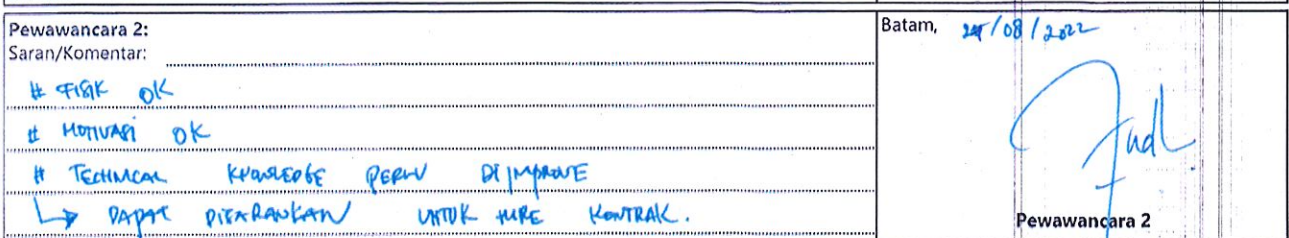 Pewawancara 2:
Saran/Komentar:
# FISIK OK
# MOTIVASI OK
# TECHNICAL KNOWLEDGE PERLU DI IMPROVE
↳ DAPAT DISARANKAN UNTUK HIRE KONTRAK.
Batam, /08/2022
Pewawancara 2